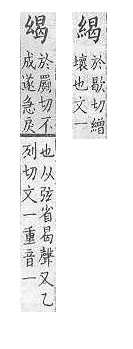 於歇切繒
壞也文一
於罽切不
成遂急戾
也从弦省曷聲又乙
列切文一重音一